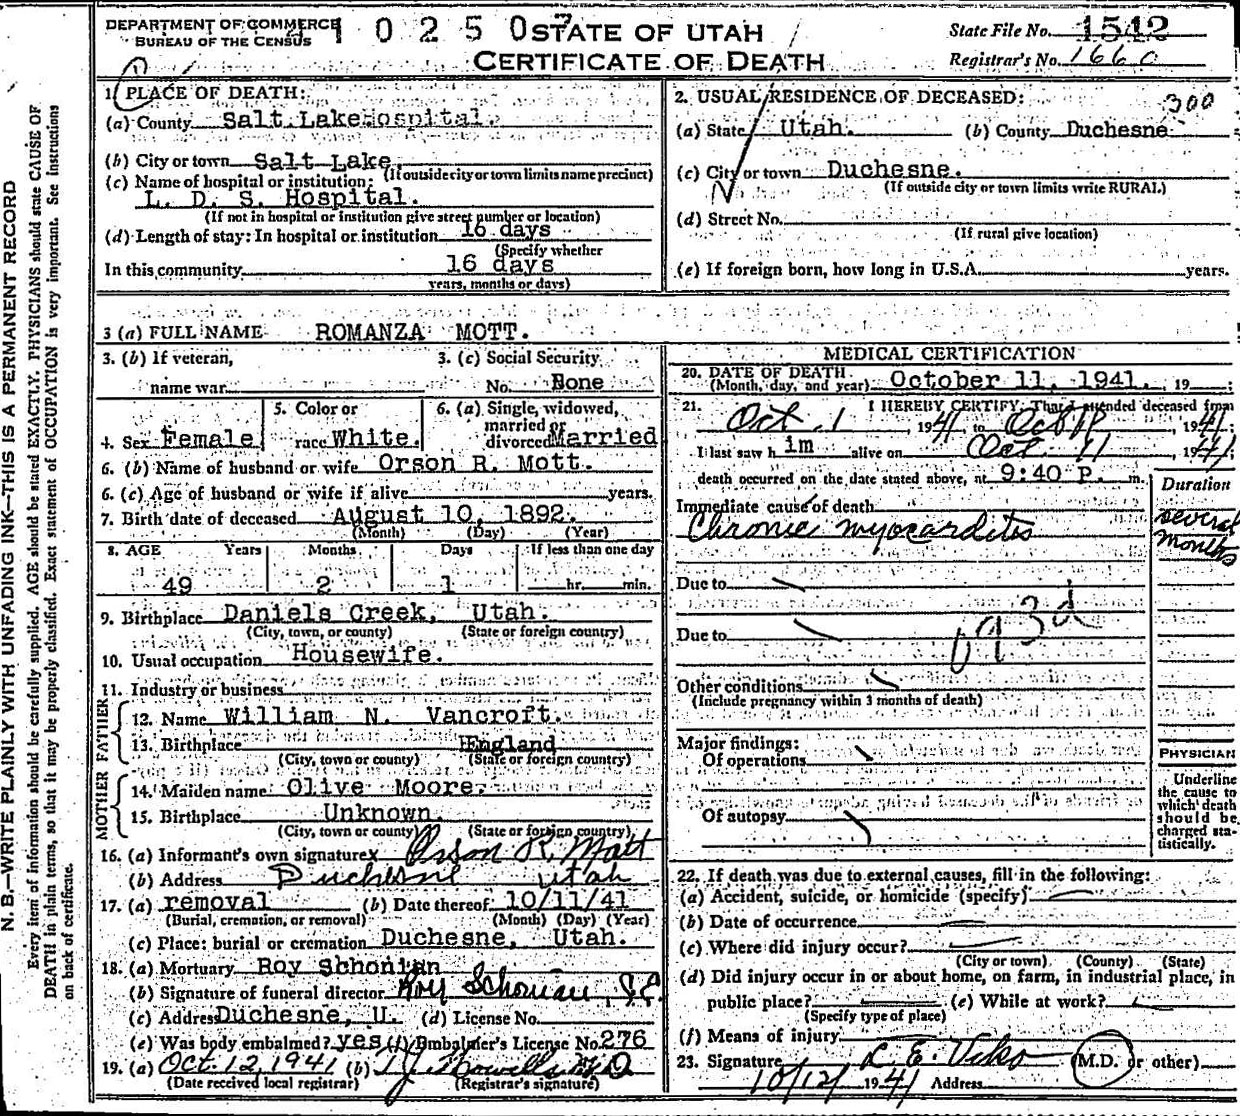 DEPARTMENT OF COMMERCE
BUREAU OF THE CENSUS
1 0 2 5 0 7
STATE OF UTAH
CERTIFICATE OF DEATH
State File No. 1542
Registrar's No. 1660
1. PLACE OF DEATH:
(a) County Salt Lake Hospital.
(b) City or town Salt Lake.
(If outside city or town limits name precinct)
(c) Name of hospital or institution:
L. D. S. Hospital.
(If not in hospital or institution give street number or location)
(d) Length of stay: In hospital or institution 16 days
(Specify whether
In this community 16 days
years, months or days)
2. USUAL RESIDENCE OF DECEASED: 300
(a) State Utah. (b) County Duchesne
(c) City or town Duchesne.
(If outside city or town limits write RURAL)
(d) Street No.
(If rural give location)
(e) If foreign born, how long in U.S.A. years.
3 (a) FULL NAME ROMANZA MOTT.
3. (b) If veteran, 3. (c) Social Security
name war No. None
4. Sex Female 5. Color or race White. 6. (a) Single, widowed, married or divorced Married
6. (b) Name of husband or wife Orson R. Mott.
6. (c) Age of husband or wife if alive years.
7. Birth date of deceased August 10, 1892.
(Month) (Day) (Year)
8. AGE Years Months Days If less than one day
49 2 1 hr. min.
9. Birthplace Daniels Creek, Utah.
(City, town, or county) (State or foreign country)
10. Usual occupation Housewife.
11. Industry or business
FATHER
12. Name William N. Vancroft.
13. Birthplace England
(City, town or county) (State or foreign country)
MOTHER
14. Maiden name Olive Moore.
15. Birthplace Unknown.
(City, town or county) (State or foreign country)
16. (a) Informant's own signature x Orson R. Mott
(b) Address Duchesne Utah
17. (a) removal (b) Date thereof 10/11/41
(Burial, cremation, or removal) (Month) (Day) (Year)
(c) Place: burial or cremation Duchesne, Utah.
18. (a) Mortuary Roy Schonian
(b) Signature of funeral director Roy Schonian
(c) Address Duchesne, U. (d) License No.
(e) Was body embalmed? yes (f) Embalmer's License No. 276
19. (a) Oct. 12, 1941 (b) T J Howells M D
(Date received local registrar) (Registrar's signature)
MEDICAL CERTIFICATION
20. DATE OF DEATH
(Month, day, and year) October 11, 1941. , 19 ;
21. I HEREBY CERTIFY, That I attended deceased from
Oct. 1 , 1941 to Oct 11 , 1941;
I last saw h im alive on Oct. 11 , 1941;
death occurred on the date stated above, at 9:40 P. m.
Duration
Immediate cause of death
Chronic myocarditis several months
Due to
093d
Due to
Other conditions
(Include pregnancy within 3 months of death)
Major findings:
Of operations
Of autopsy
PHYSICIAN
Underline
the cause to
which death
should be
charged sta-
tistically.
22. If death was due to external causes, fill in the following:
(a) Accident, suicide, or homicide (specify)
(b) Date of occurrence
(c) Where did injury occur?
(City or town) (County) (State)
(d) Did injury occur in or about home, on farm, in industrial place, in
public place? (e) While at work?
(Specify type of place)
(f) Means of injury
23. Signature L. E. Viko (M.D. or other)
10/12/ 1941 Address
N. B.—WRITE PLAINLY WITH UNFADING INK—THIS IS A PERMANENT RECORD
Every item of information should be carefully supplied. AGE should be stated EXACTLY. PHYSICIANS should state CAUSE OF
DEATH in plain terms, so that it may be properly classified. Exact statement of OCCUPATION is very important. See instructions
on back of certificate.